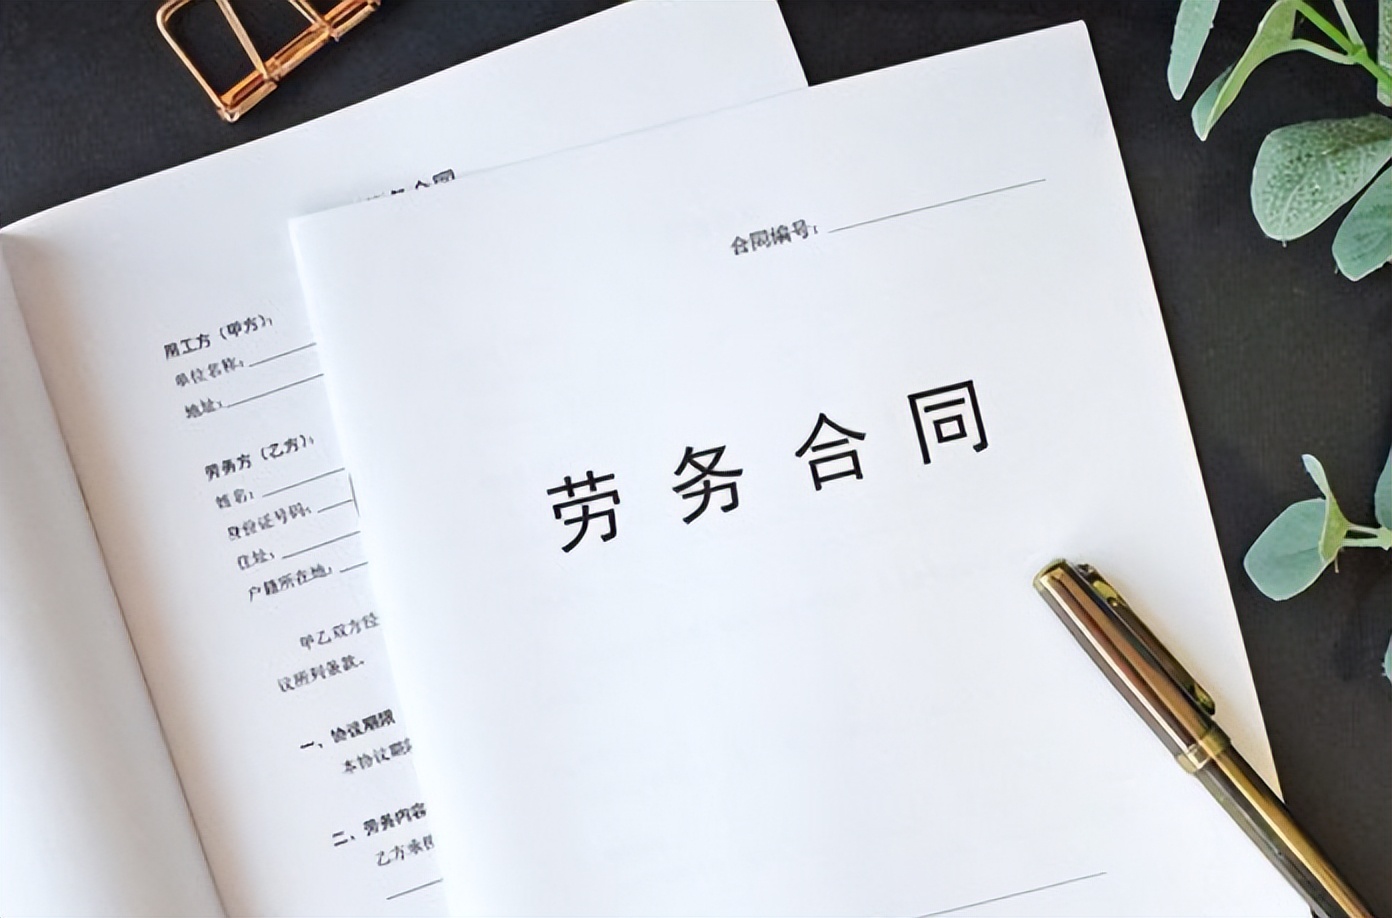 合同编号:
劳务合同
务合同
用工方（甲方）:
单位名称:
地址:
劳务方（乙方）:
姓名:
身份证号码:
住址:
户籍所在地:
甲乙双方经
议所列条款。
一、协议期限
本协议期
二、劳务内容
乙方承担